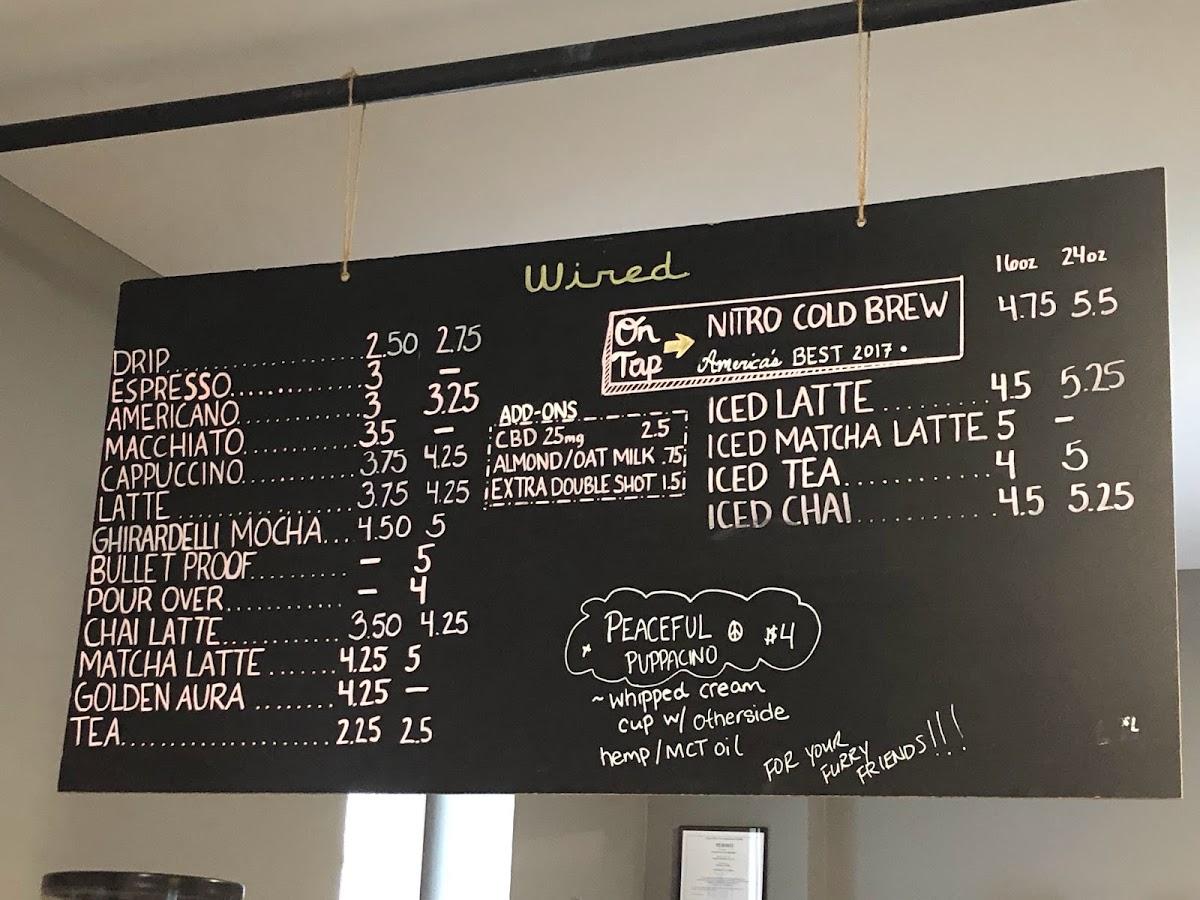 Wired
DRIP 2.50 2.75
ESPRESSO 3 –
AMERICANO 3 3.25
MACCHIATO 3.5 –
CAPPUCCINO 3.75 4.25
LATTE 3.75 4.25
GHIRARDELLI MOCHA 4.50 5
BULLET PROOF – 5
POUR OVER – 4
CHAI LATTE 3.50 4.25
MATCHA LATTE 4.25 5
GOLDEN AURA 4.25 –
TEA 2.25 2.5
ADD-ONS
CBD 25mg 2.5
ALMOND/OAT MILK .75
EXTRA DOUBLE SHOT 1.5
16oz 24oz
On Tap → NITRO COLD BREW 4.75 5.5
America's BEST 2017
ICED LATTE 4.5 5.25
ICED MATCHA LATTE 5 –
ICED TEA 4 5
ICED CHAI 4.5 5.25
PEACEFUL ☮ $4
PUPPACINO
~ whipped cream
cup w/ Otherside
hemp/MCT oil
FOR YOUR
FURRY
FRIENDS!!!